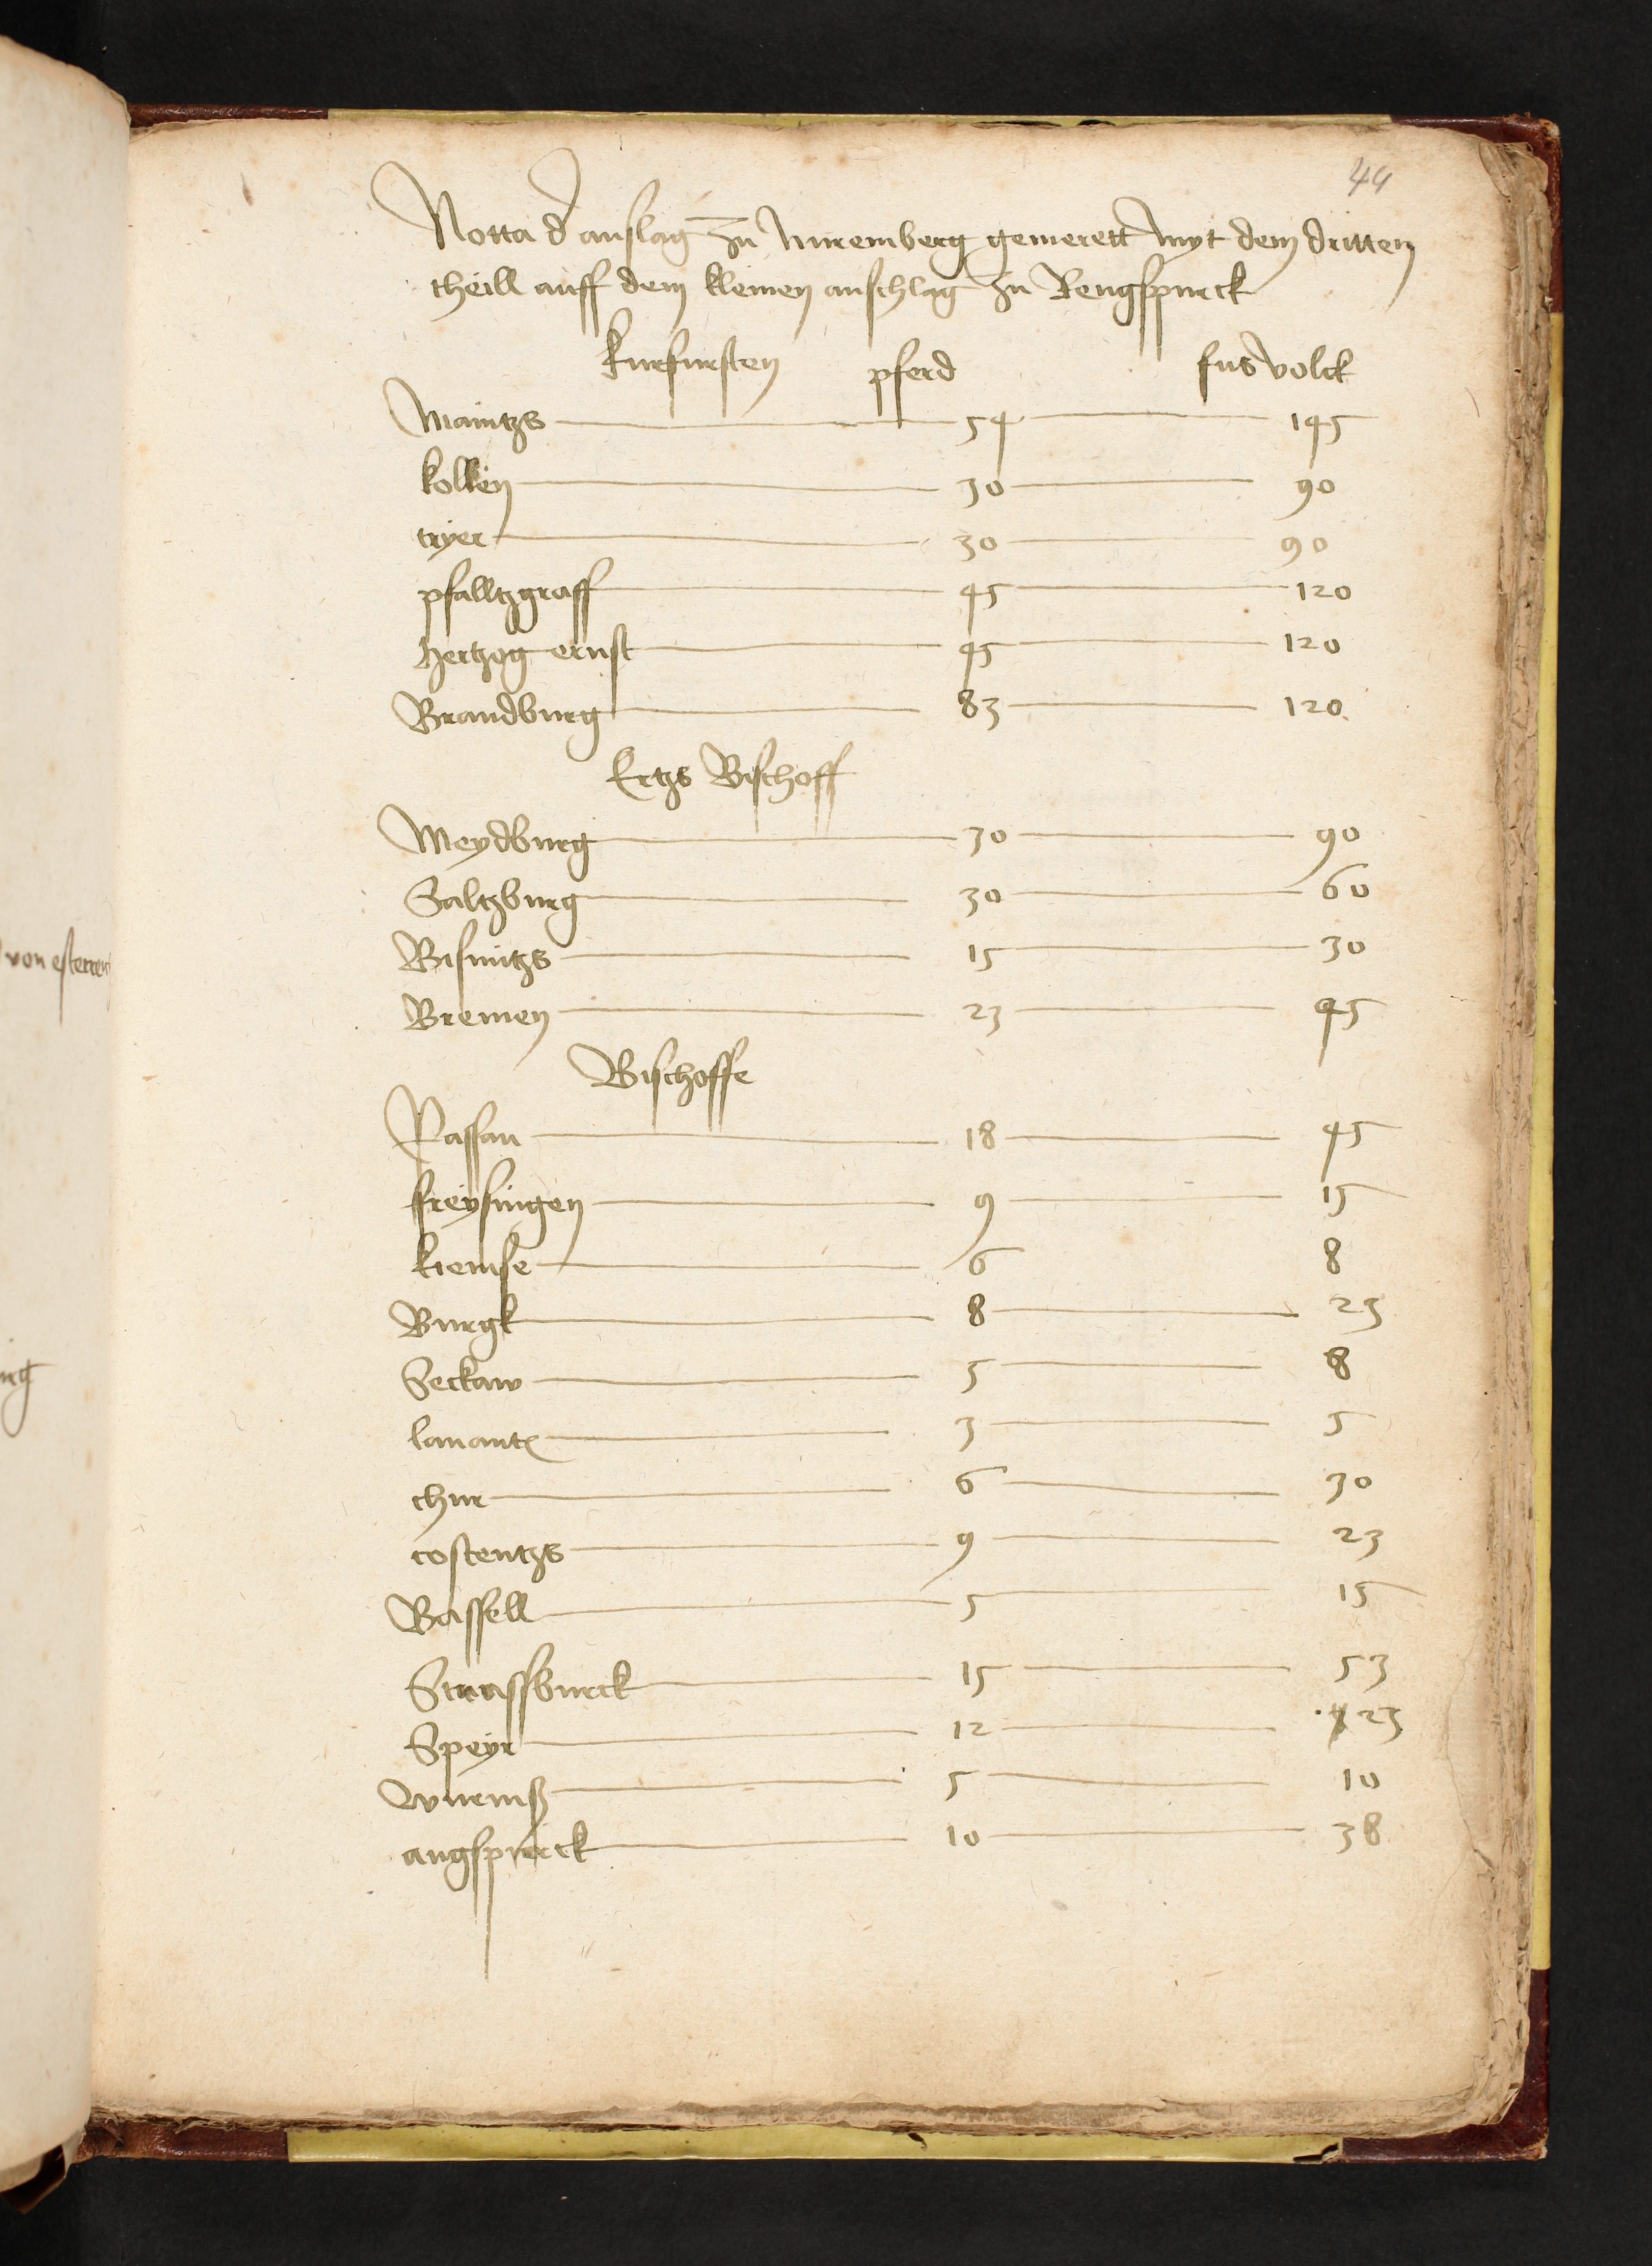 44
Notta d' anslag zu nuremberg gemerett myt dem dritten
theill auff dem kleinen anschlag zu Rengsspurck
kurfursten pferd fusvolck
Maintzs 54 145
kollen 30 90
tryer 30 90
pfalltzgraff 45 120
Hertzog ernst 45 120
Brandburg 83 120
Ertzs Bischoff
Meydburg 30 90
Saltzburg 30 60
Bisuntzs 15 30
Bremen 23 45
Bischoffe
Passau 18 45
freysingen 9 15
kiemse 6 8
Burgk 8 23
Seckaw 5 8
lauant 3 5
chur 6 30
costentzs 9 23
Bassell 5 15
Strassburck 15 53
Speyr 12 23
Wuremß 5 10
augspurck 10 38
von esterren